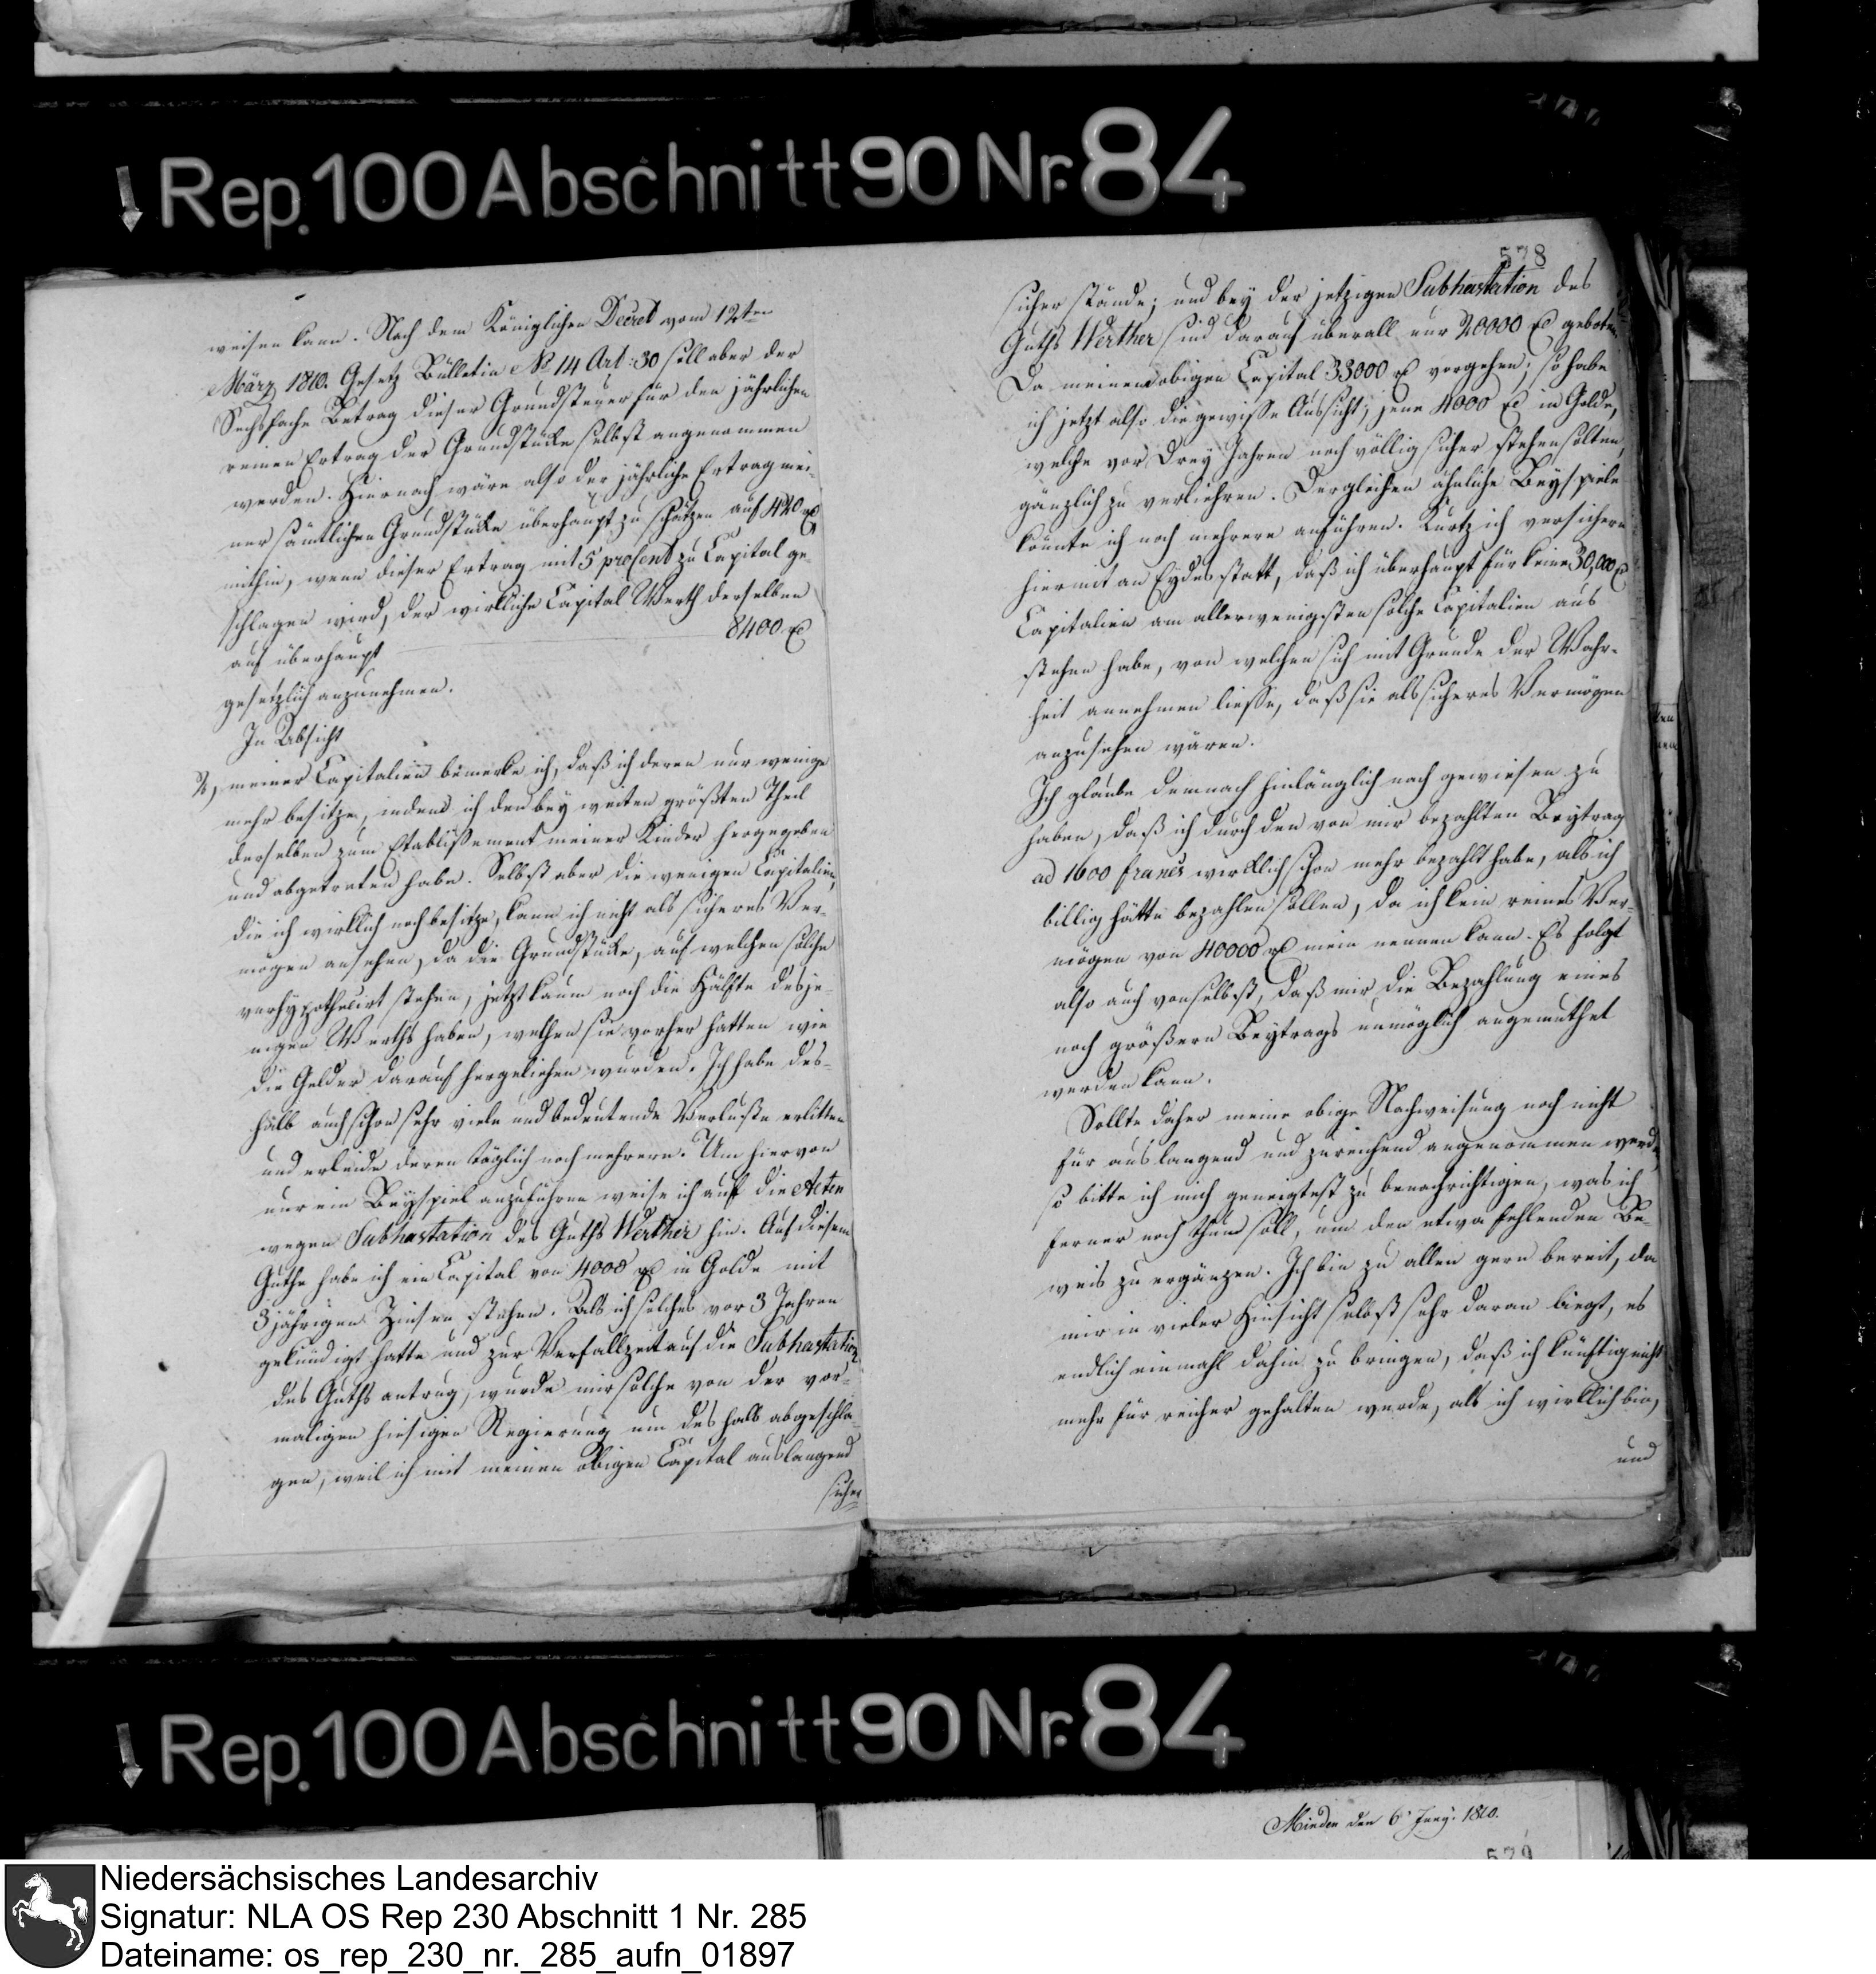 ↓ Rep. 100 Abschnitt 90 Nr. 84
weisen kann. Nach dem Königlichen Decret vom 12ten
März 1810. Gesetz Bülletin No 14 Art: 30 soll aber der
Sechsfache Betrag dieser Grundsteuer für den jährlichen
reinen Ertrag der Grundstücke selbst angenommen
werden. Hiernach wäre also der jährliche Ertrag mei-
ner sämtlichen Grundstücke überhaupt zu schätzen auf 420 rt
mithin, wenn dieser Ertrag mit 5 procent zu Capital ge-
schlagen wird, der wirkliche Capital Werth derselben
auf überhaupt 8400 rt
gesetzlich anzunehmen.
In Absicht
2, meiner Capitalien bemerke ich, daß ich deren nur wenige
mehr besitze, indem ich den bey weiten größten Theil
derselben zum Etablißement meiner Kinder hergegeben
und abgetreten habe. Selbst aber die wenigen Capitalien,
die ich wirklich noch besitze, kann ich nicht als sicheres Ver-
mögen ansehen, da die Grundstücke, auf welchen solche
verhypothecirt stehen, jetzt kaum noch die Hälfte desje-
nigen Werths haben, welchen sie vorher hatten wie
die Gelder darauf hergeliehen wurden. Ich habe des-
halb auch schon sehr viele und bedeutende Verluste erlitten
und erleide deren täglich noch mehrere. Um hiervon
nur ein Beyspiel anzuführen weise ich auf die Acten
wegen Subhastation des Guths Werther hin. Auf diesem
Guthe habe ich ein Capital von 4000 rt in Golde mit
3 jährigen Zinsen stehen. Als ich solches vor 3 Jahren
gekündigt hatte und zur Verfallzeit auf die Subhastation
des Guths antrug, wurde mir solche von der vor-
maligen hiesigen Regierung um deshalb abgeschla-
gen, weil ich mit meinen obigen Capital auslangend
sicher
578
sicher stände; und bey der jetzigen Subhastation des
Guths Werther sind darauf überall nur 20000 rt geboten.
Da meinem obigen Capital 33000 rt vorgehen; so habe
ich jetzt also die gewisse Aussicht, jene 4000 rt in Golde,
welche vor drey Jahren noch völlig sicher stehen solten,
gänzlich zu verliehren. Dergleichen ähnliche Beyspiele
könnte ich noch mehrere anführen. Kurtz ich versichere
hiermit an Eydes statt, daß ich überhaupt für keine 30,000 rt
Capitalien am allerwenigsten solche Capitalien aus
stehen habe, von welchen sich mit Grunde der Wahr-
heit annehmen liesse, daß sie als sicheres Vermögen
anzusehen wären.
Ich glaube demnach hinlänglich nach gewiesen zu
haben, daß ich durch den von mir bezahlten Beytrag
ad 1600 francs wirklich schon mehr bezahlt habe, als ich
billig hätte bezahlen sollen, da ich kein reines Ver-
mögen von 40000 rt mein nennen kann. Es folgt
also auch von selbst, daß mir die Bezahlung eines
noch größern Beytrags unmöglich angemuthet
werden kann.
Sollte daher meine obige Nachweisung noch nicht
für auslangend und zureichend angenommen werde,
so bitte ich mich geneigtest zu benachrichtigen, was ich
ferner noch thun soll, um den etwa fehlenden Be-
weis zu ergänzen. Ich bin zu allen gern bereit, da
mir in vieler Hinsicht selbst sehr daran liegt, es
endlich einmahl dahin zu bringen, daß ich künftig nicht
mehr für reicher gehalten werde, als ich wirklich bin,
und
↓ Rep. 100 Abschnitt 90 Nr. 84
Minden den 6 Juny. 1810.
579
Niedersächsisches Landesarchiv
Signatur: NLA OS Rep 230 Abschnitt 1 Nr. 285
Dateiname: os_rep_230_nr._285_aufn_01897